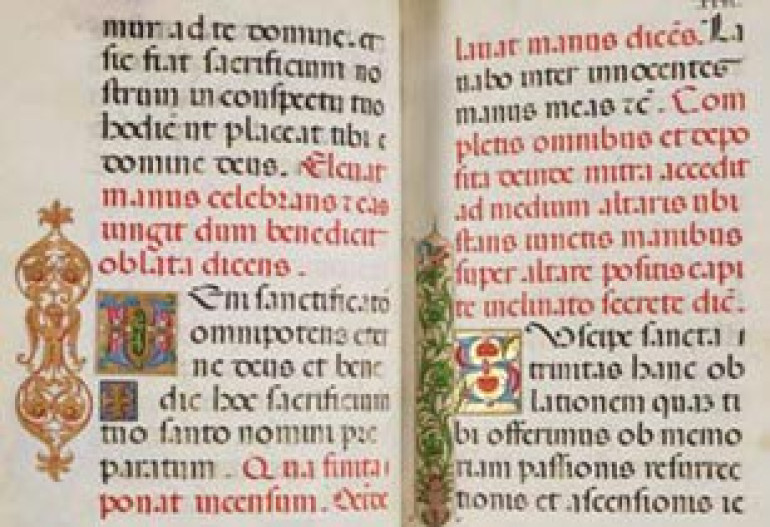 mur ad te domine. et
sic fiat sacrificium no
strum in conspectu tuo
hodie ut placeat tibi
domine deus. Eleuat
manus celebrans
iungit dum benedicit
oblata dicens.
Em sanctificatõ
omnipotens eter
ne deus et bene
dic hoc sacrificium
tuo santo nomini pre
paratum. Qua finita
ponat incensum. Deide
lauat manus diceñs. La
nabo inter innocentes
manus meas ⁊c̃. Com
pletis omnibus et depo
sita deinde mitra accedit
ad medium altaris ubi
stans iunctis manibus
super altare positis capi
te inclinato secrete dic̃.
Suscipe sancta
trinitas hanc ob
lationem quaʒ ti
bi offerimus ob memo
riam passionis resurrec
tionis et ascensionis ie